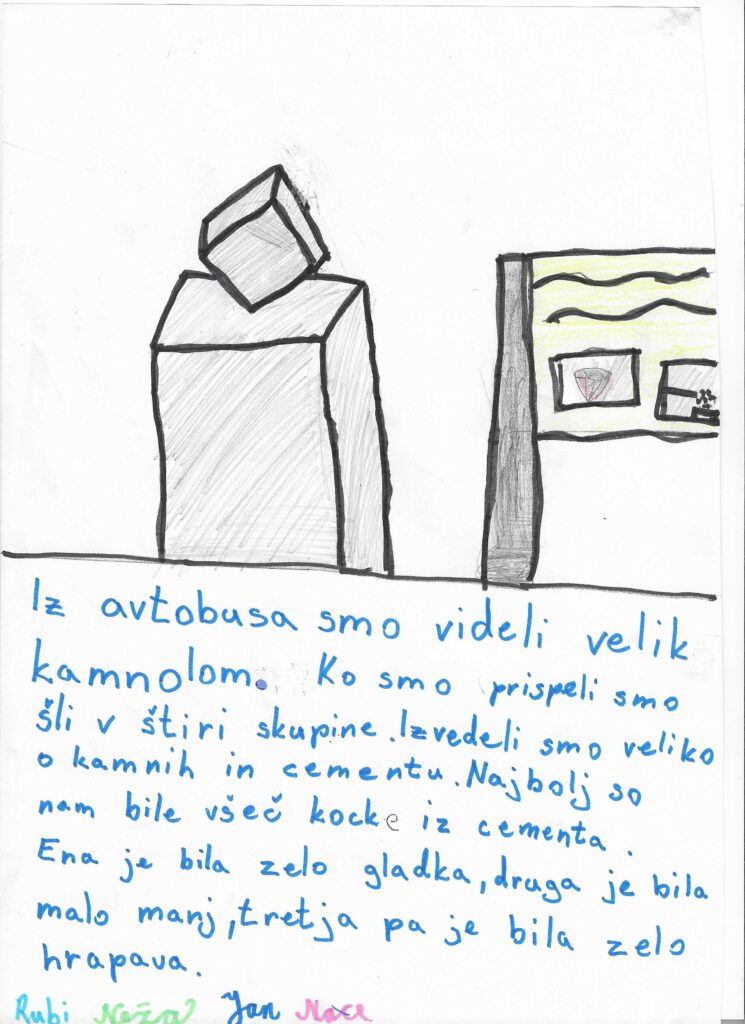 Iz avtobusa smo videli velik
kamnolom. Ko smo prispeli smo
šli v štiri skupine. Izvedeli smo veliko
o kamnih in cementu. Najbolj so
nam bile všeč kocke iz cementa.
Ena je bila zelo gladka, druga je bila
malo manj, tretja pa je bila zelo
hrapava.
Rubi Neža Jan Nace